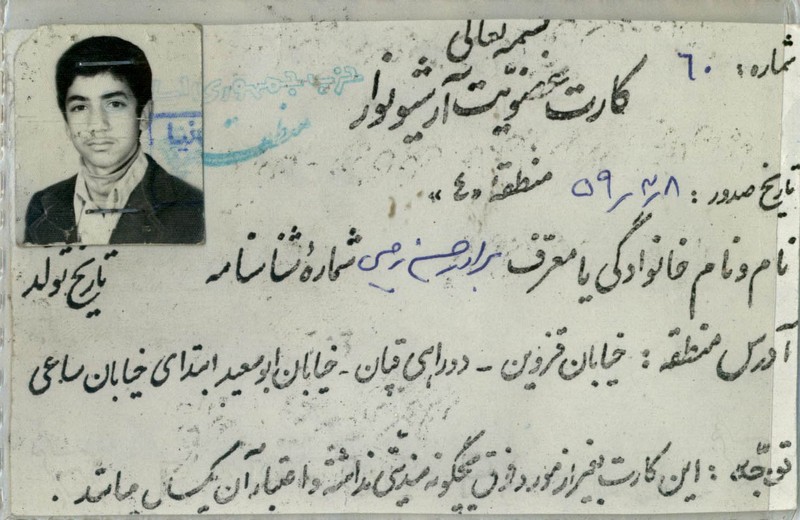 بسمه تعالی
شماره : ۶۰
کارت عضویت آرشیو نوار
حزب جمهوری اسلامی
منطقه
تاریخ صدور : ۵۹/۳/۸ منطقهٔ «٤»
نام و نام خانوادگی یا معرف برادر حسن شمارهٔ شناسنامه تاریخ تولد
آدرس منطقه : خیابان قزوین - دوراهی قپان - خیابان ابوسعید ابتدای خیابان ساعی
توجه : این کارت بغیر از مورد فوق هیچگونه نداشته و اعتبار آن یکسال میباشد .